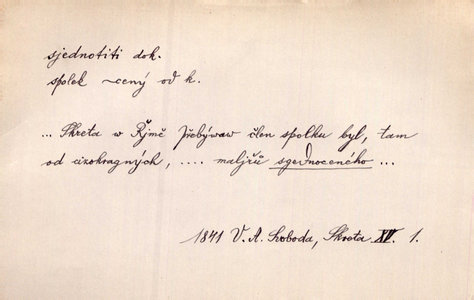 sjednotiti dok.
spolek ~cený od k.
... Skreta w Řjmě přebýwaw člen spolku byl, tam
od cizokragných, .... maljřů sgednoceného ...
1841 V. A. Svoboda, Skreta XV. 1.